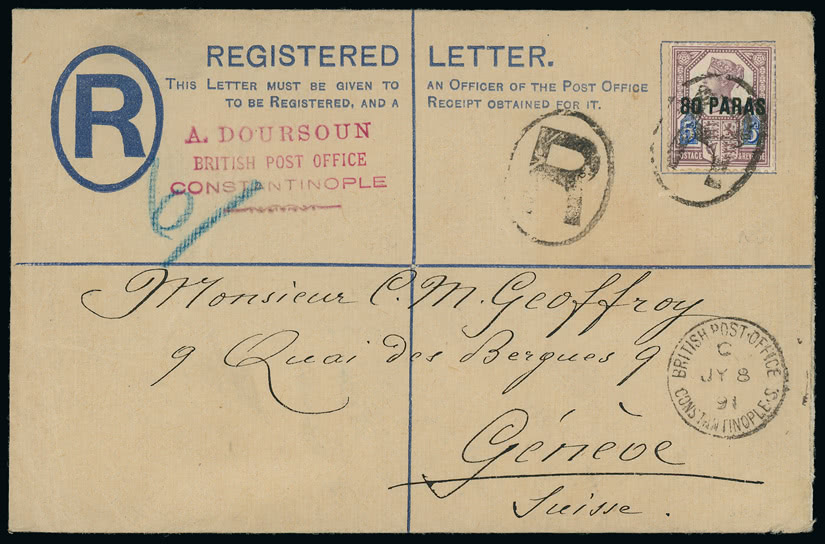 R
REGISTERED LETTER.
THIS LETTER MUST BE GIVEN TO AN OFFICER OF THE POST OFFICE
TO BE REGISTERED, AND A RECEIPT OBTAINED FOR IT.
A. DOURSOUN
BRITISH POST OFFICE
CONSTANTINOPLE
R
80 PARAS
5 5
POSTAGE & REVENUE
Monsieur C. M. Geoffroy
9 Quai des Bergues 9
Genève
Suisse.
BRITISH POST-OFFICE
C
JY 8
91
CONSTANTINOPLE·S.